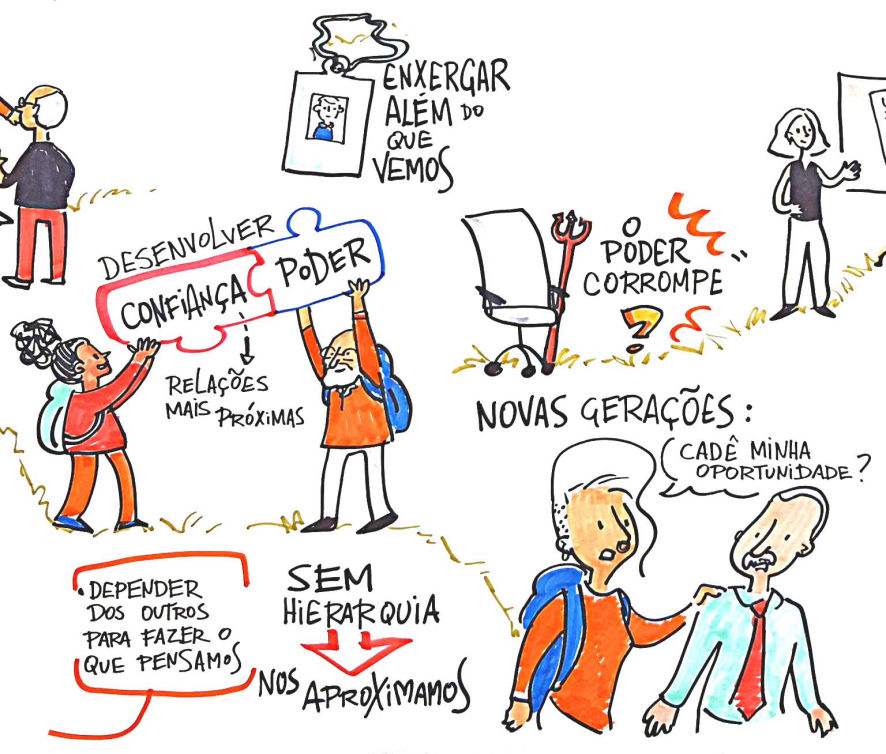 ENXERGAR
ALÉM DO
QUE
VEMOS
DESENVOLVER
CONFIANÇA
PODER
RELAÇÕES
MAIS PRÓXIMAS
O
PODER
CORROMPE
?
NOVAS GERAÇÕES:
CADÊ MINHA
OPORTUNIDADE?
• DEPENDER
DOS OUTROS
PARA FAZER O
QUE PENSAMOS
SEM
HIERARQUIA
NOS APROXIMAMOS